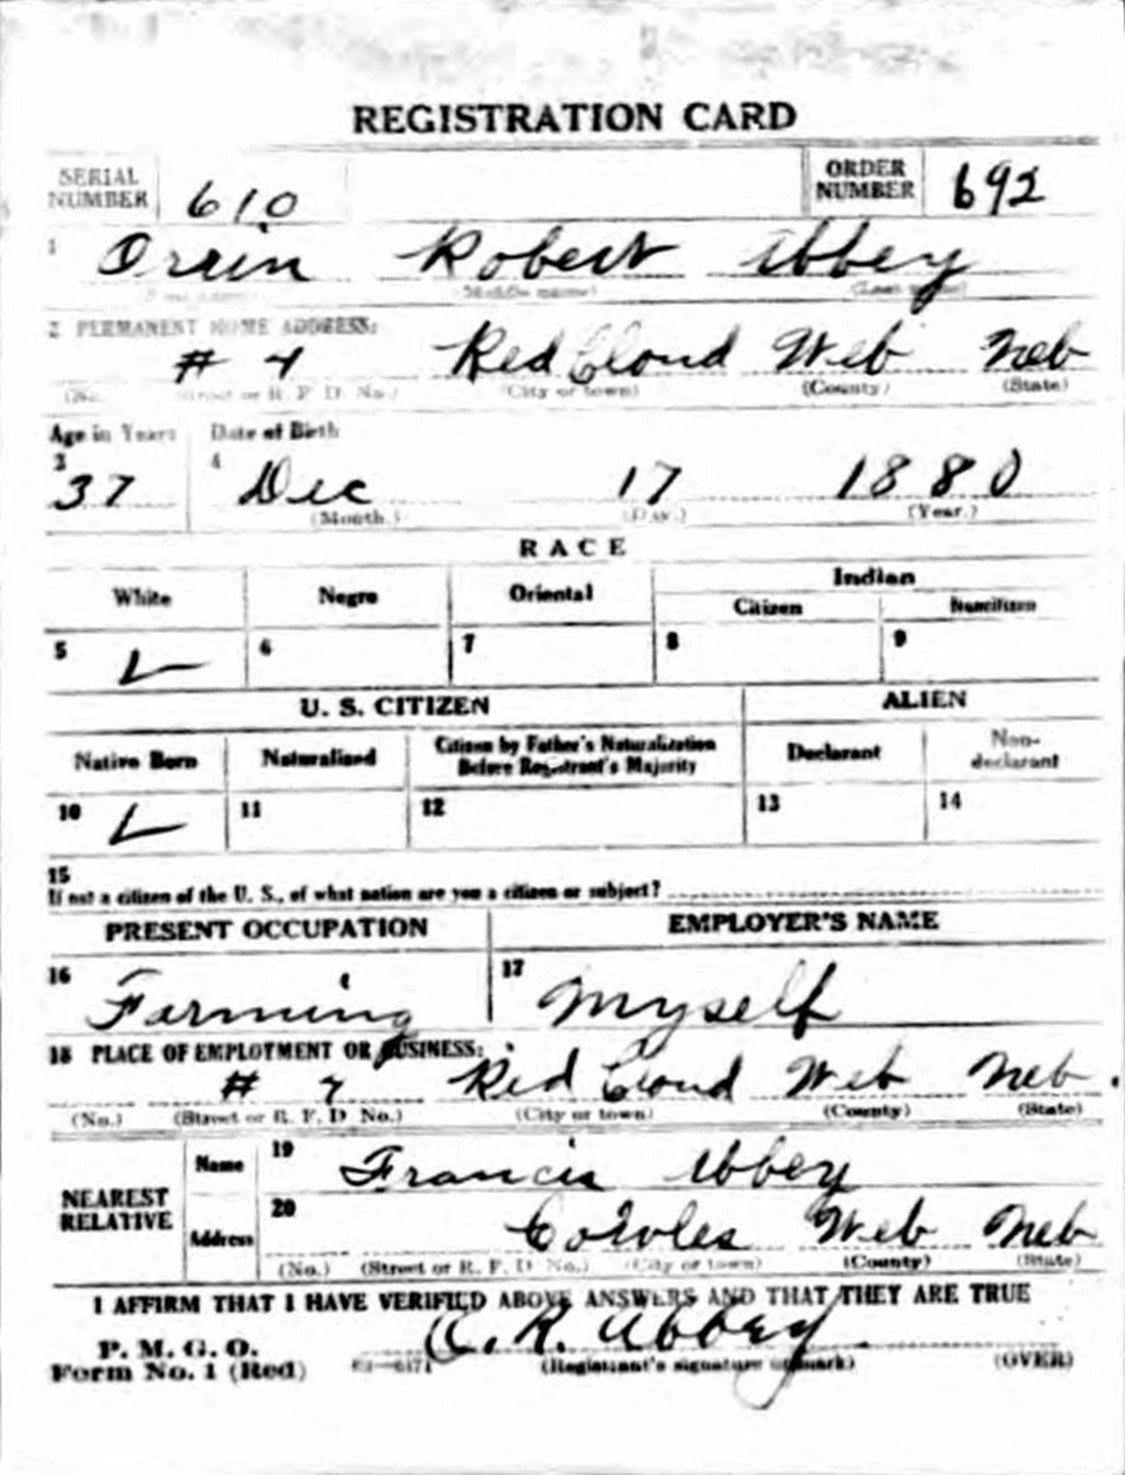 REGISTRATION CARD
SERIAL NUMBER 610 ORDER NUMBER 692
1 Orrin Robert Abbey
(Middle name) (Last name)
2 PERMANENT HOME ADDRESS:
# 4 Red Cloud Web Neb
(No.) (Street or R. F. D. No.) (City or town) (County) (State)
Age in Years Date of Birth
3 37 4 Dec 17 1880
(Month.) (Day.) (Year.)
RACE
White Negro Oriental Indian
Citizen Noncitizen
5 6 7 8 9
U. S. CITIZEN ALIEN
Native Born Naturalized Citizen by Father's Naturalization Before Registrant's Majority Declarant Non-declarant
10 11 12 13 14
15
If not a citizen of the U. S., of what nation are you a citizen or subject?
PRESENT OCCUPATION EMPLOYER'S NAME
16 Farming 17 Myself
18 PLACE OF EMPLOYMENT OR BUSINESS:
# Red Cloud Web Neb.
(No.) (Street or R. F. D. No.) (City or town) (County) (State)
NEAREST RELATIVE Name 19 Francis Abbey
Address 20 Cowles Web Neb
(No.) (Street or R. F. D. No.) (City or town) (County) (State)
I AFFIRM THAT I HAVE VERIFIED ABOVE ANSWERS AND THAT THEY ARE TRUE
P. M. G. O.
Form No. 1 (Red) O. R. Abbey
(Registrant's signature or mark) (OVER)